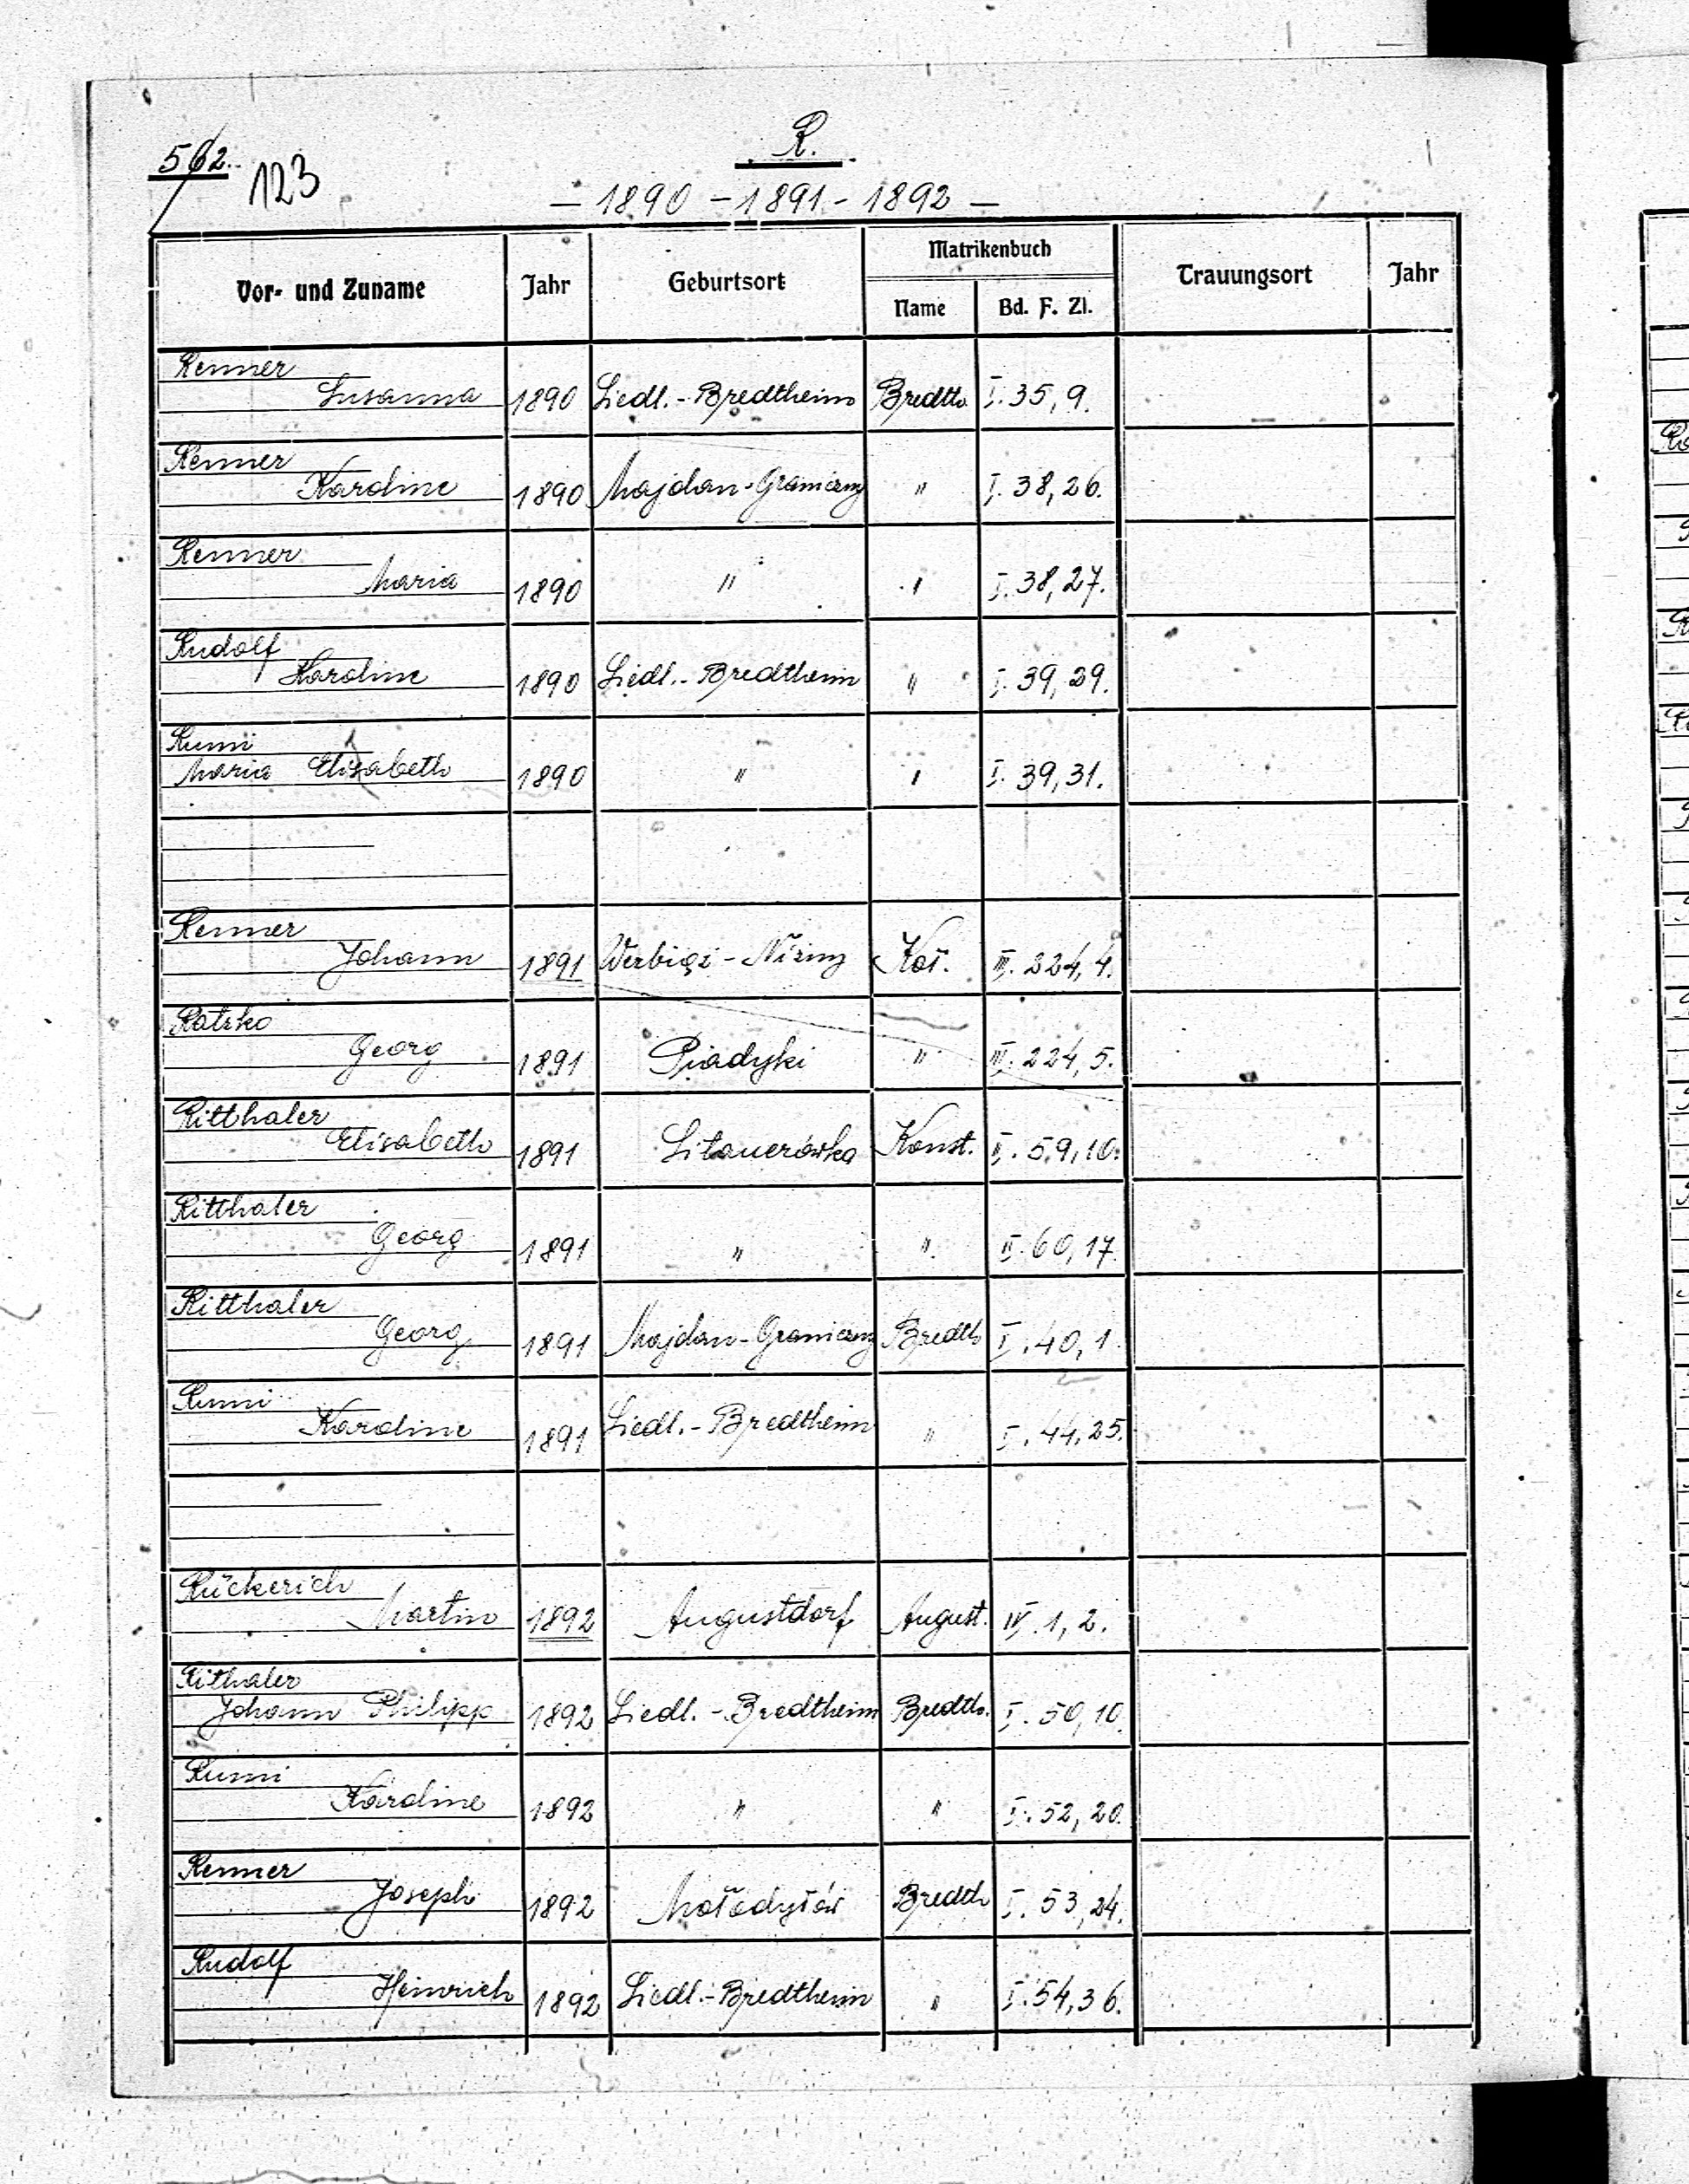 R.
562.
123
- 1890 - 1891 - 1892 -
Vor- und Zuname Jahr Geburtsort Matrikenbuch Trauungsort Jahr
Name Bd. F. Zl.
Renner
Susanna 1890 Siedl.-Bredtheim Bredth. I. 35, 9.
Renner
Karoline 1890 Majdan-Graniczny " I. 38, 26.
Renner
Maria 1890 " " I. 38, 27.
Rudolf
Karoline 1890 Siedl.-Bredtheim " I. 39, 29.
Rumi
Maria Elisabeth 1890 " " I. 39, 31.
Renner
Johann 1891 Werbiąż-Niżny Koł. III. 224, 4.
Ratzko
Georg 1891 Piadyki " III. 224, 5.
Ritthaler
Elisabeth 1891 Sitauerówka Konst. II. 59, 10.
Ritthaler
Georg 1891 " " II. 60, 17.
Ritthaler
Georg 1891 Majdan-Graniczny Bredth I. 40, 1.
Rumi
Karoline 1891 Siedl.-Bredtheim " I. 44, 25.
Rückerich
Martin 1892 Augustdorf August. IV. 1, 2.
Rithaler
Johann Philipp 1892 Siedl.-Bredtheim Bredth. I. 50, 10.
Rumi
Karoline 1892 " " I. 52, 20.
Renner
Joseph 1892 Mołodyłów Bredth I. 53, 24.
Rudolf
Heinrich 1892 Siedl.-Bredtheim " I. 54, 36.